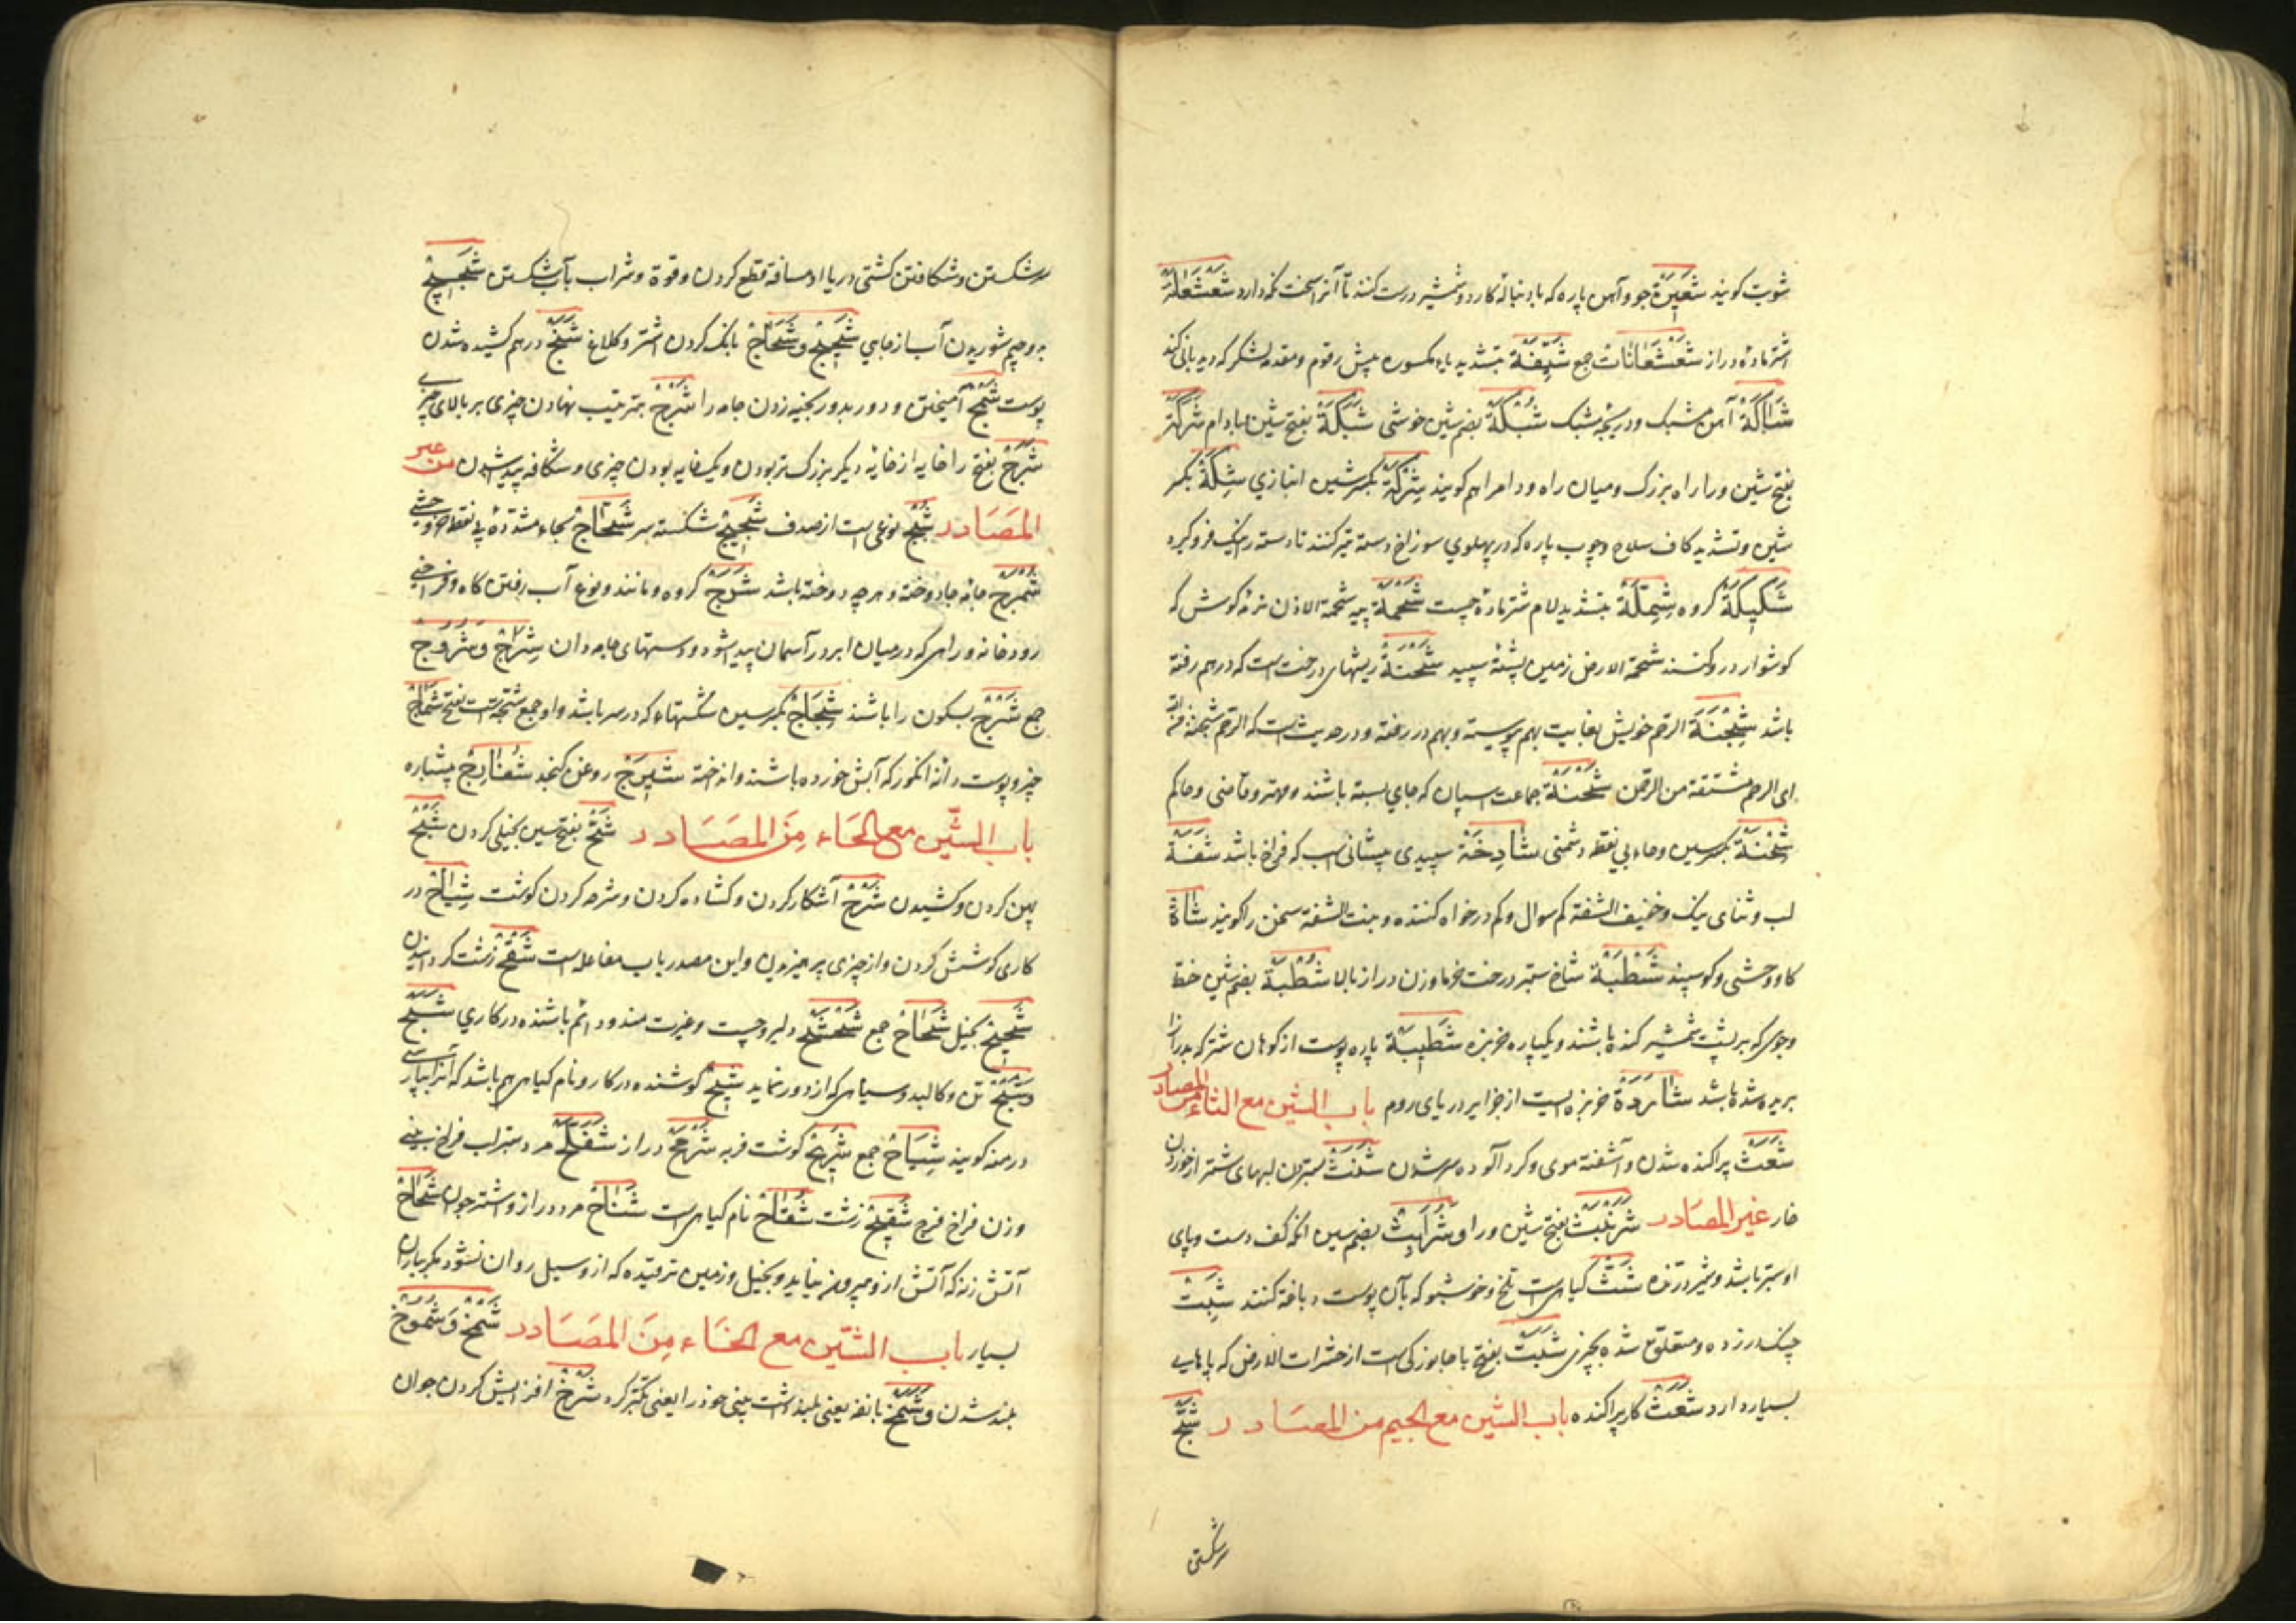 شوبت کویند شَعِیرَةٌ جو و آهن پاره که با دنباله کارد و شمشیر درست کنند تا آنرا سخت نکه دارد شَعْشَعَانَةٌ
اشتر ماده دراز شَعْشَعَانَاتٌ جمع شَیِّفَةٌ بتشدید یاء مکسوره پیش رو قوم و مقدمه لشکر که دیدبانی کند
شَبَّاکَةٌ آهن مشبک و دریچه مشبک شُبْکَةٌ بضم شین خوشی شَبَکَةٌ بفتح شین و با دام شَرَکَةٌ
بفتح شین و را راه بزرک و میان راه و دام را هم کویند شِرْکَةٌ بکسر شین انبازی شِکَّةٌ بکسر
شین و تشدید کاف سلاح و چوب پاره که در پهلوی سوراخ دسته تبر کنند تا دسته را نیک فرو کیرد
شَکِیکَةٌ کروه شِمِلَّةٌ بتشدید لام شتر ماده چست شَحْمَةٌ پیه شحمة الاذن نرمه کوش که
کوشوار درو کنند شحمة الارض زمین پشته سپید شَجْنَةٌ ریشهای درخت است که درهم رفته
باشد شِجْنَةٌ الرحم خویش بغایت بهم پیوسته و بهم در رفته و در حدیث است که الرحم شجنة من الله
ای الرحم مشتقة من الرحمن شِحْنَةٌ جماعت اسپان که جای بسته باشند و مهتر و قاضی و حاکم
شِحْنَةٌ بکسر شین و حاء بی نقطه دشمنی شَادِخَةٌ سپیدی پیشانی اسپ که فراخ باشد شَفَةٌ
لب و ثنای نیک و خفیف الشفة کم سوال و کم درخواه کننده و بنت الشفة سخن را کویند شَاةٌ
کاو وحشی و کوسپند شَطْبَةٌ شاخ ستبر درخت خرما و زن دراز بالا شُطْبَةٌ بضم شین خط
و جوی که بر پشت شمشیر کنده باشند و یکپاره خربزه شَطِیبَةٌ پاره پوست از کوهان شتر که بدرازا
بریده شده باشد شَارَدَةٌ جزیره ایست از جزایر دریای روم باب الشین مع الثاء من المصادر
شَعَثٌ پراکنده شدن و آشفته موی و کرد آلوده سر شدن شَنَثٌ ستبر شدن لبهای شتر از خوردن
خار غیر المصادر شَرَنْبَثٌ بفتح شین و را و شُرَابِثٌ بضم شین انکه کف دست و پای
او ستبر باشد و شیر درنده شَثٌّ کیاهی است تلخ و خوشبو که بآن پوست دباغه کنند شَبِثٌ
چنک در زده و متعلق شده بچیزی شَبَثٌ بفتح با جانورکی است از حشرات الارض که پاهای
بسیار دارد شَعَثٌ کار پراکنده باب الشین مع الجیم من المصادر شَجٌّ
سر شکستن
سر شکستن و شکافتن کشتی دریا را و مسافة قطع کردن و قوة و شراب بآب شکستن شَجِیجٌ
بدو جیم شوریدن آب از جای شَحِیجٌ و شُحَاجٌ بانک کردن اشتر و کلاغ شَنَجٌ درهم کشیده شدن
پوست شَمْجٌ آمیختن و دور بدور بخیه زدن جامه را شَرْجٌ بترتیب نهادن چیزی بر بالای چیزی
شَرَجٌ بفتح را خایه از خایه دیکر بزرک تر بودن و یک خایه بودن چیزی و شکافه پدید شدن من غیر
المصادر شَجٌّ نوعی است از صدف شَجِیجٌ شکسته سر شَحَّاجٌ بحاء مشدده بی نقطه خر وحشی
شَمْرَجٌ جامه جا دوخته و هرچه دوخته باشد شَرْجٌ کروه و مانند و نوع آب رفتن کاه و فراخی
رودخانه و راهی که در میان ابر در آسمان پیدا شود و دستهای جامه دان شِرَاجٌ و شُرُوجٌ
جمع شَرْجٌ بسکون را باشند شِجَاجٌ بکسر شین شکستهاء که در سر باشد و او جمع شجه است بفتح شَمَاجٌ
چیز و پوست دانه انکور که آبش خورده باشند و انداخته شِیرَجٌ روغن کنجد شُفَارِجٌ پیشپاره
باب الشین مع الحاء من المصادر شَحٌّ بفتح شین بخیلی کردن شَبْحٌ
پهن کردن و کشیدن شَرْحٌ آشکار کردن و کشاده کردن و شرحه کردن کوشت شِیَاحٌ در
کاری کوشش کردن و از چیزی پرهیزیدن و این مصدر باب مفاعله است شَقْحٌ زشت کردانیدن
شَحِیحٌ بخیل شِحَاحٌ جمع شَحْشَحٌ دلیر و چست و غیرت مند و دائم باشنده در کاری شَبْحٌ
و شَبَحٌ تن و کالبد و سیاهی که از دور نماید شِیحٌ کوشنده در کار و نام کیاهی هم باشد که آنرا بپارسی
درمنه کویند شِیَاحٌ جمع شَرِیحٌ کوشت فربه شَرْمَحٌ دراز شَفَلَّحٌ مرد ستبر لب فراخ بینی
و زن فراخ فرج شَقِیحٌ زشت شُقَّاحٌ نام کیاهی است شَنَاحٌ مرد دراز و اشتر جوان شَحَاحٌ
آتش زنه که آتش ازو بیرون نیاید و بخیل و زمین ترقیده که ازو سیل روان نشود مکر بباران
بسیار باب الشین مع الخاء من المصادر شَمْخٌ و شُمُوخٌ
بلند شدن و شَمَخَ بانفه یعنی بلند داشت بینی خود را یعنی تکبر کرد شَرْخٌ افزایش کردن جوان